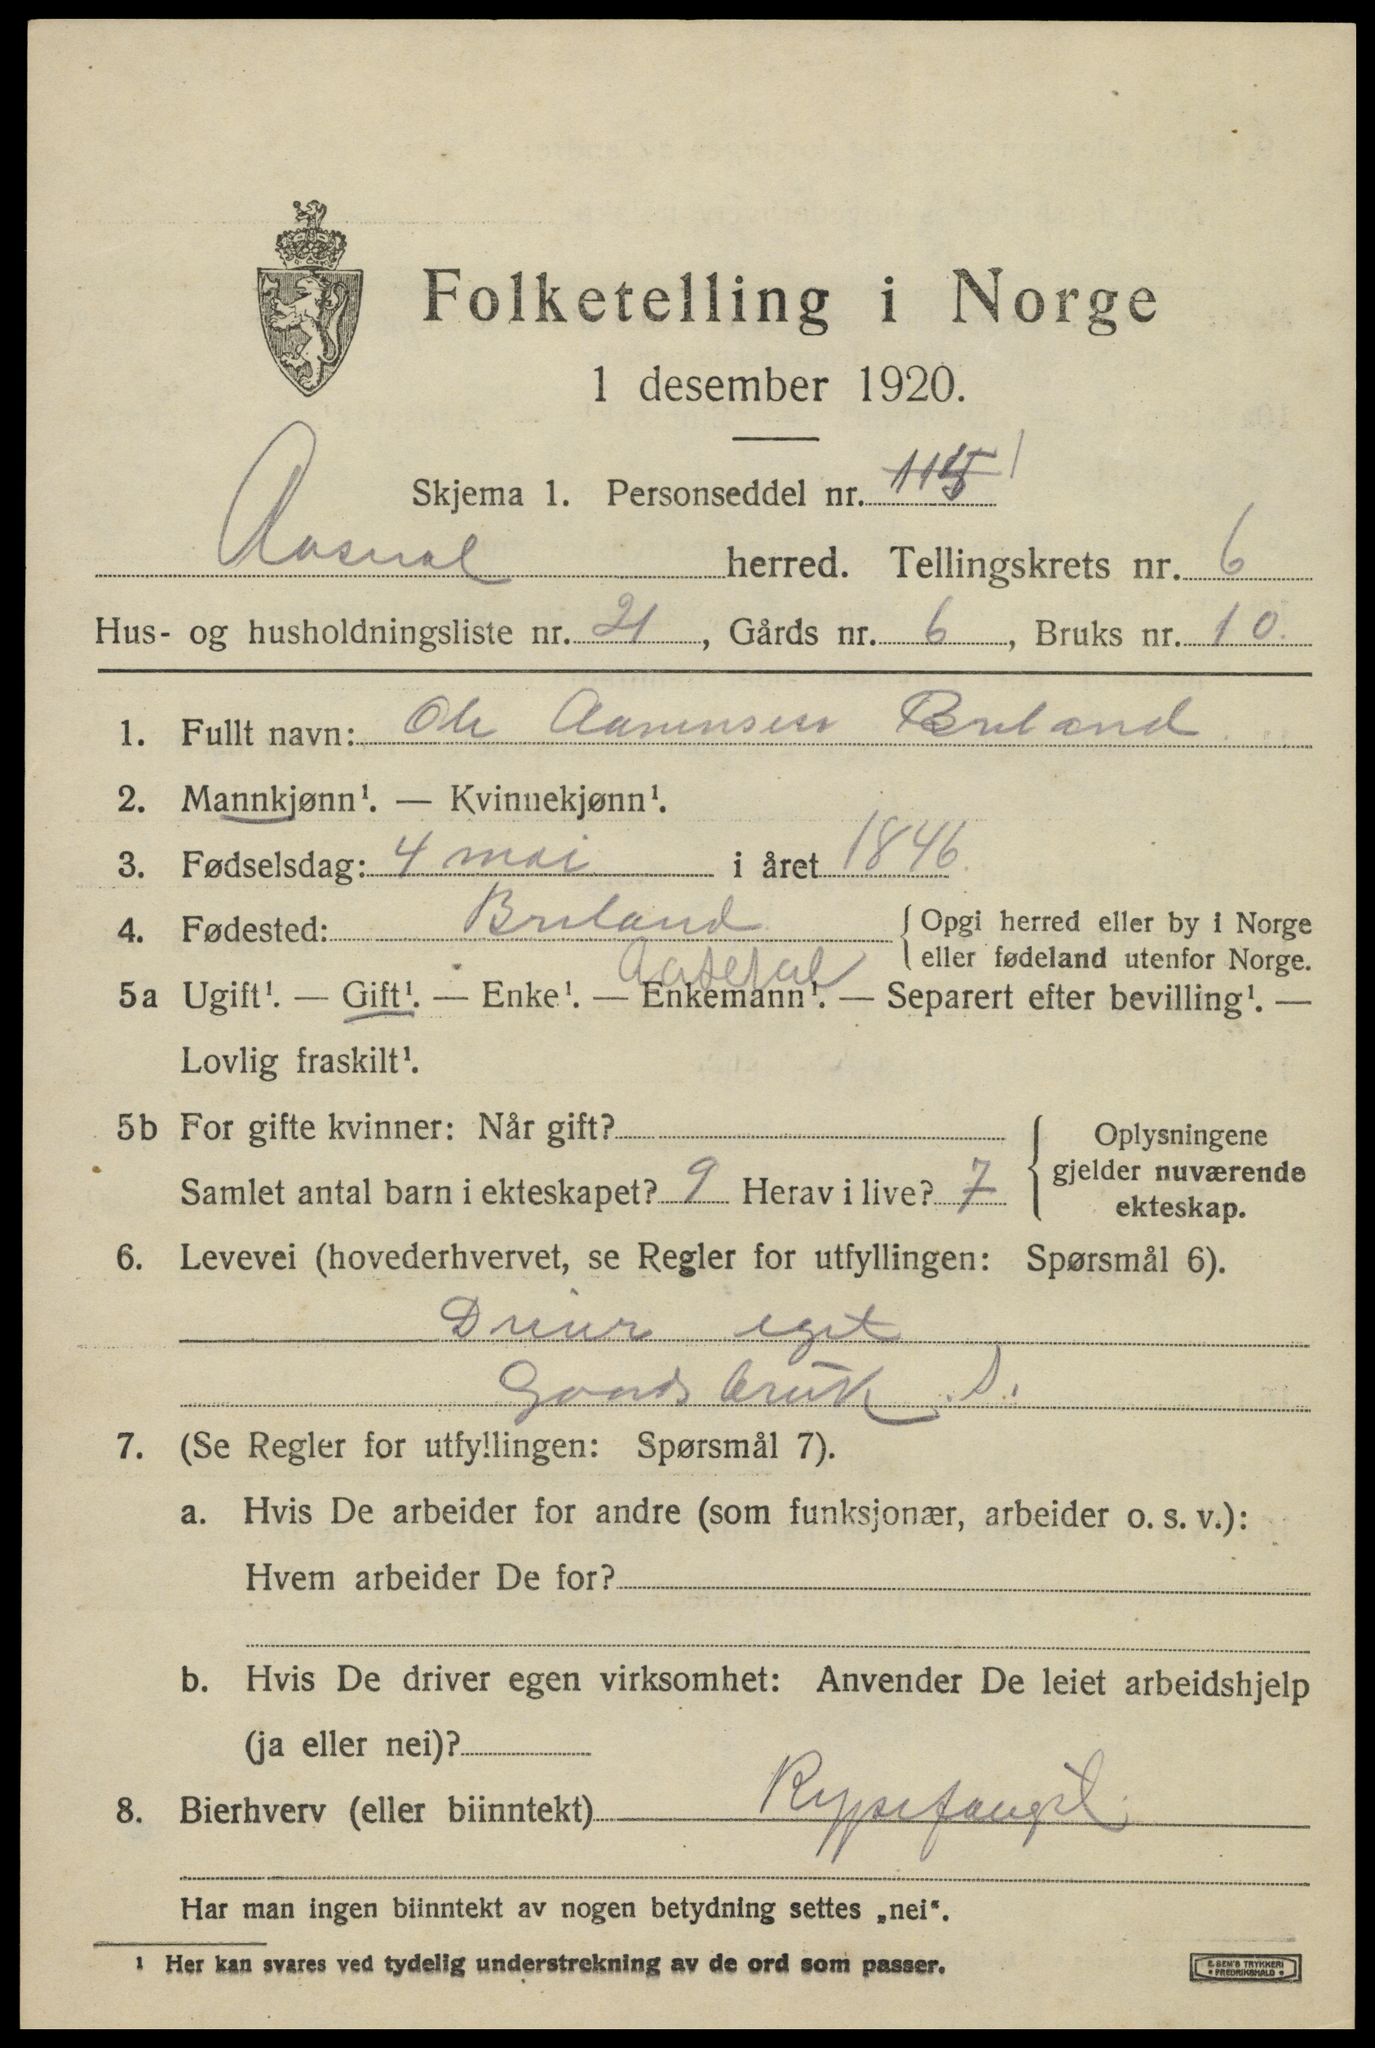 Folketelling i Norge
1 desember 1920.
Skjema 1. Personseddel nr. 115 1
Aaseral herred. Tellingskrets nr. 6
Hus- og husholdningsliste nr. 21, Gårds nr. 6, Bruks nr. 10.
1. Fullt navn: Ole Aanensen Breland
2. Mannkjønn¹. — Kvinnekjønn¹.
3. Fødselsdag: 4 mai i året 1846
4. Fødested: Breland { Opgi herred eller by i Norge
eller fødeland utenfor Norge.
Aaseral
5a Ugift¹. — Gift¹. — Enke¹. — Enkemann¹. — Separert efter bevilling¹. —
Lovlig fraskilt¹.
5b For gifte kvinner: Når gift?
Samlet antal barn i ekteskapet? 9 Herav i live? 7
{ Oplysningene
gjelder nuværende
ekteskap.
6. Levevei (hovederhvervet, se Regler for utfyllingen: Spørsmål 6).
Driver eget
Gaardsbruk S.
7. (Se Regler for utfyllingen: Spørsmål 7).
a. Hvis De arbeider for andre (som funksjonær, arbeider o. s. v.):
Hvem arbeider De for?
b. Hvis De driver egen virksomhet: Anvender De leiet arbeidshjelp
(ja eller nei)?
8. Bierhverv (eller biinntekt) Rypefangst
Har man ingen biinntekt av nogen betydning settes „nei".
¹ Her kan svares ved tydelig understrekning av de ord som passer.
E. SEM'S TRYKKERI
• FREDRIKSHALD •